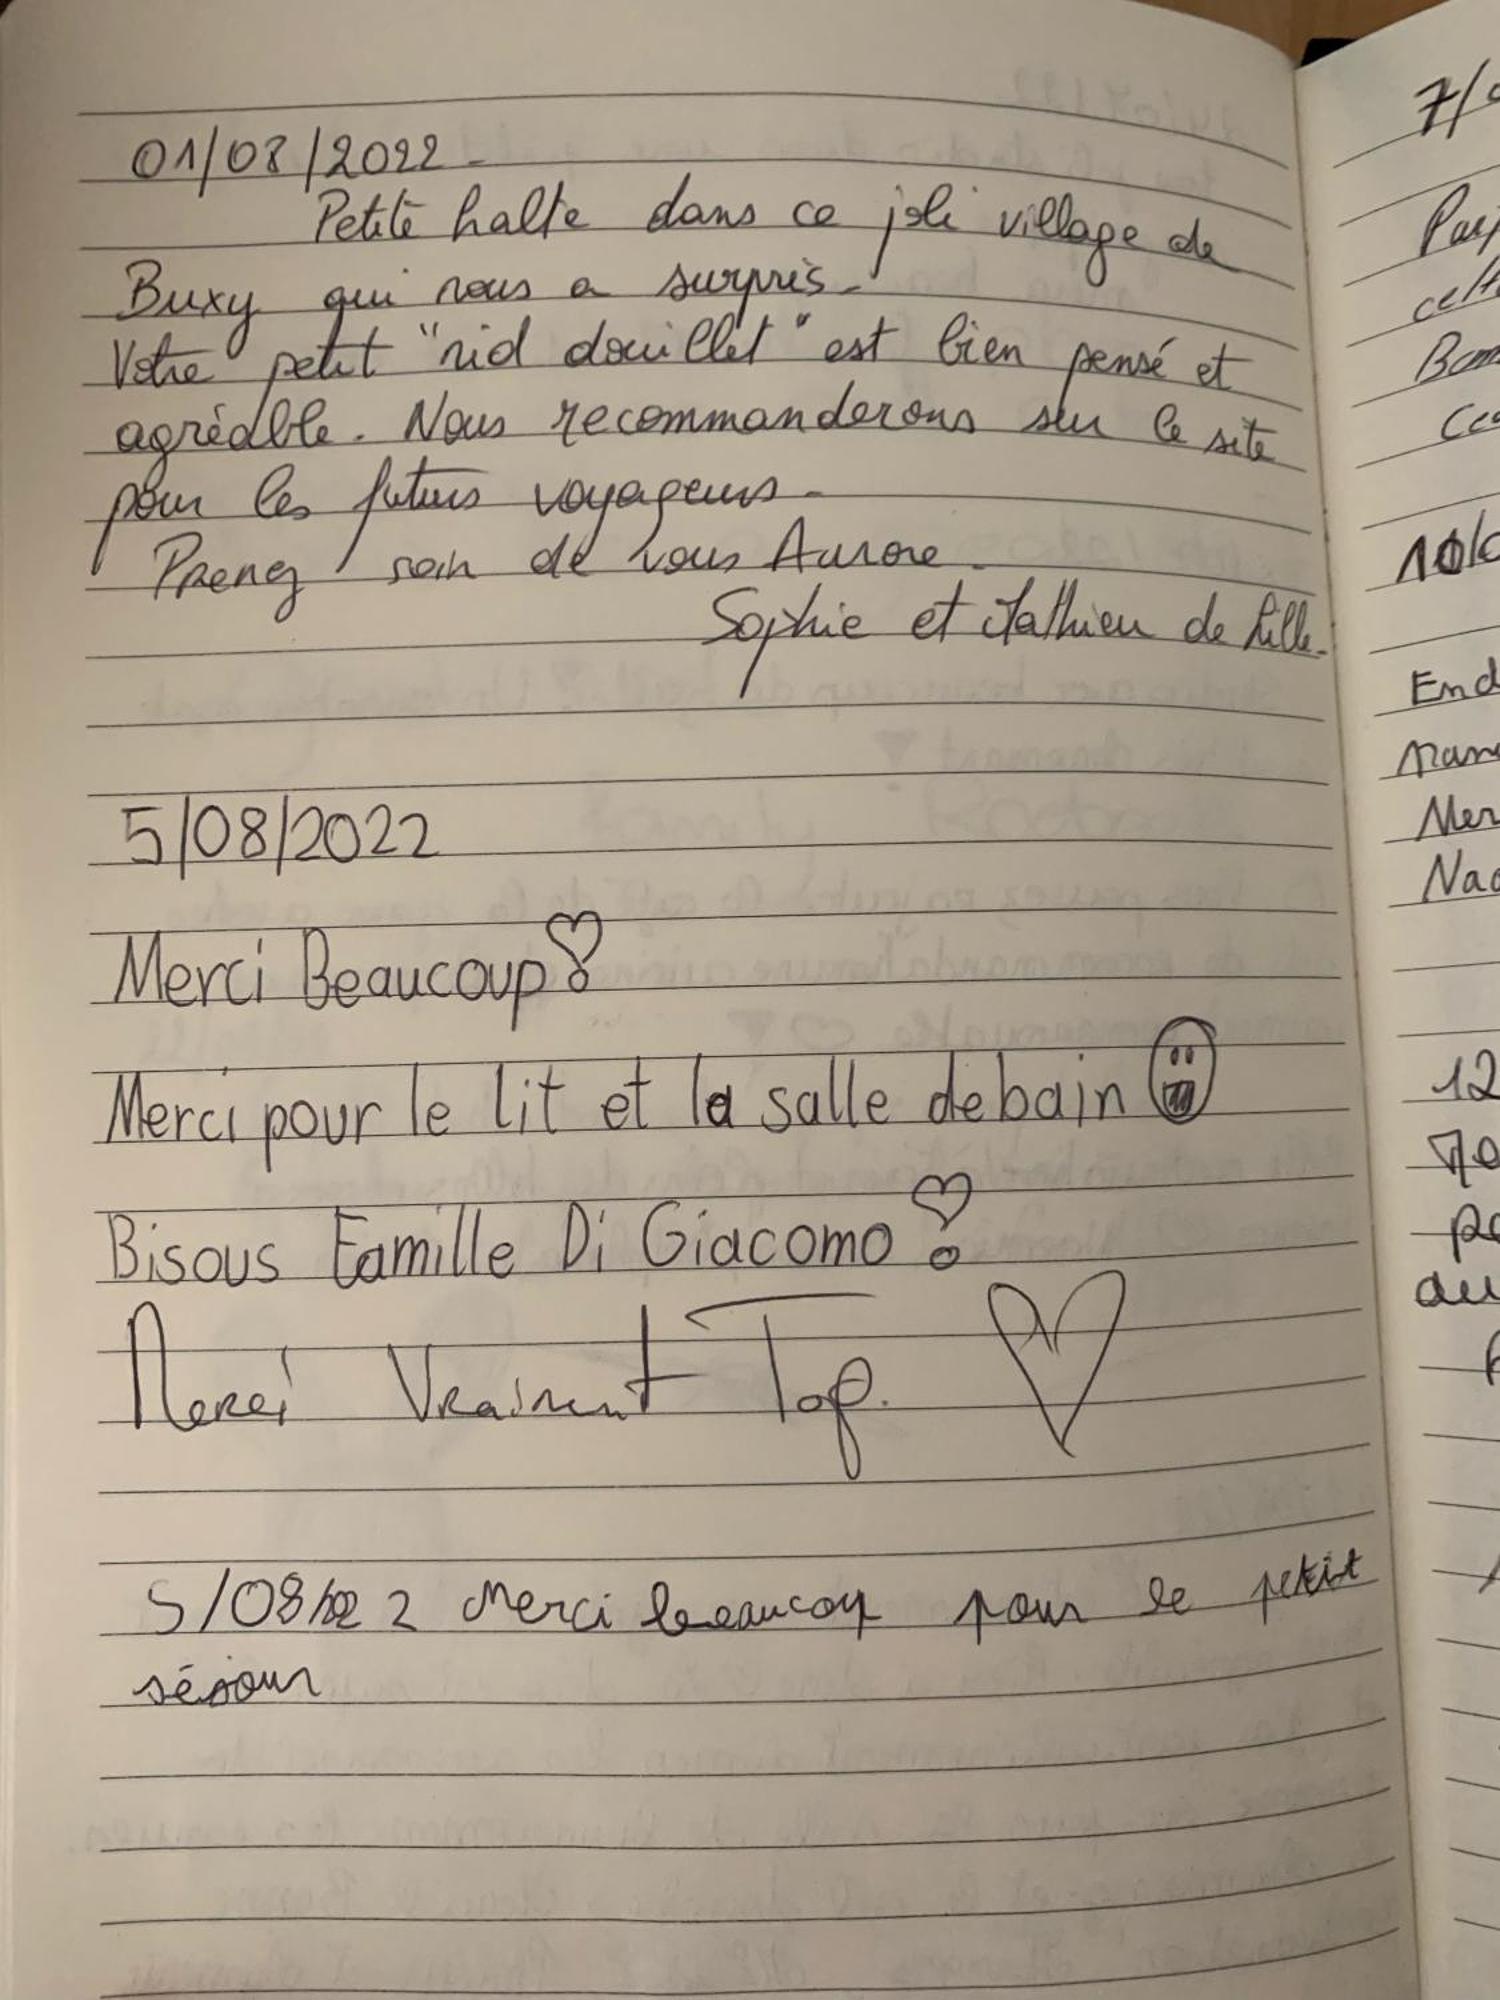 01/08/2022.
Petite halte dans ce joli village de
Buxy qui nous a surpris.
Votre petit "nid douillet" est bien pensé et
agréable. Nous recommanderons sur le site
pour les futurs voyageurs.
Prenez soin de vous Aurore.
Sophie et Mathieu de Lille.
5/08/2022
Merci Beaucoup
Merci pour le lit et la salle de bain
Bisous Famille Di Giacomo
Merci Vraiment Top.
5/08/2022 Merci beaucoup pour le petit
séjour
7/
10/
12